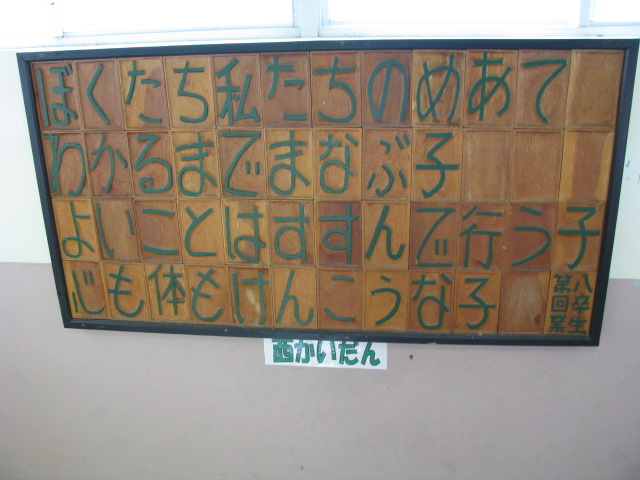 ぼくたち私たちのめあて
わかるまでまなぶ子
よいことはすすんで行う子
心も体もけんこうな子
第八
回卒
業生
西かいだん